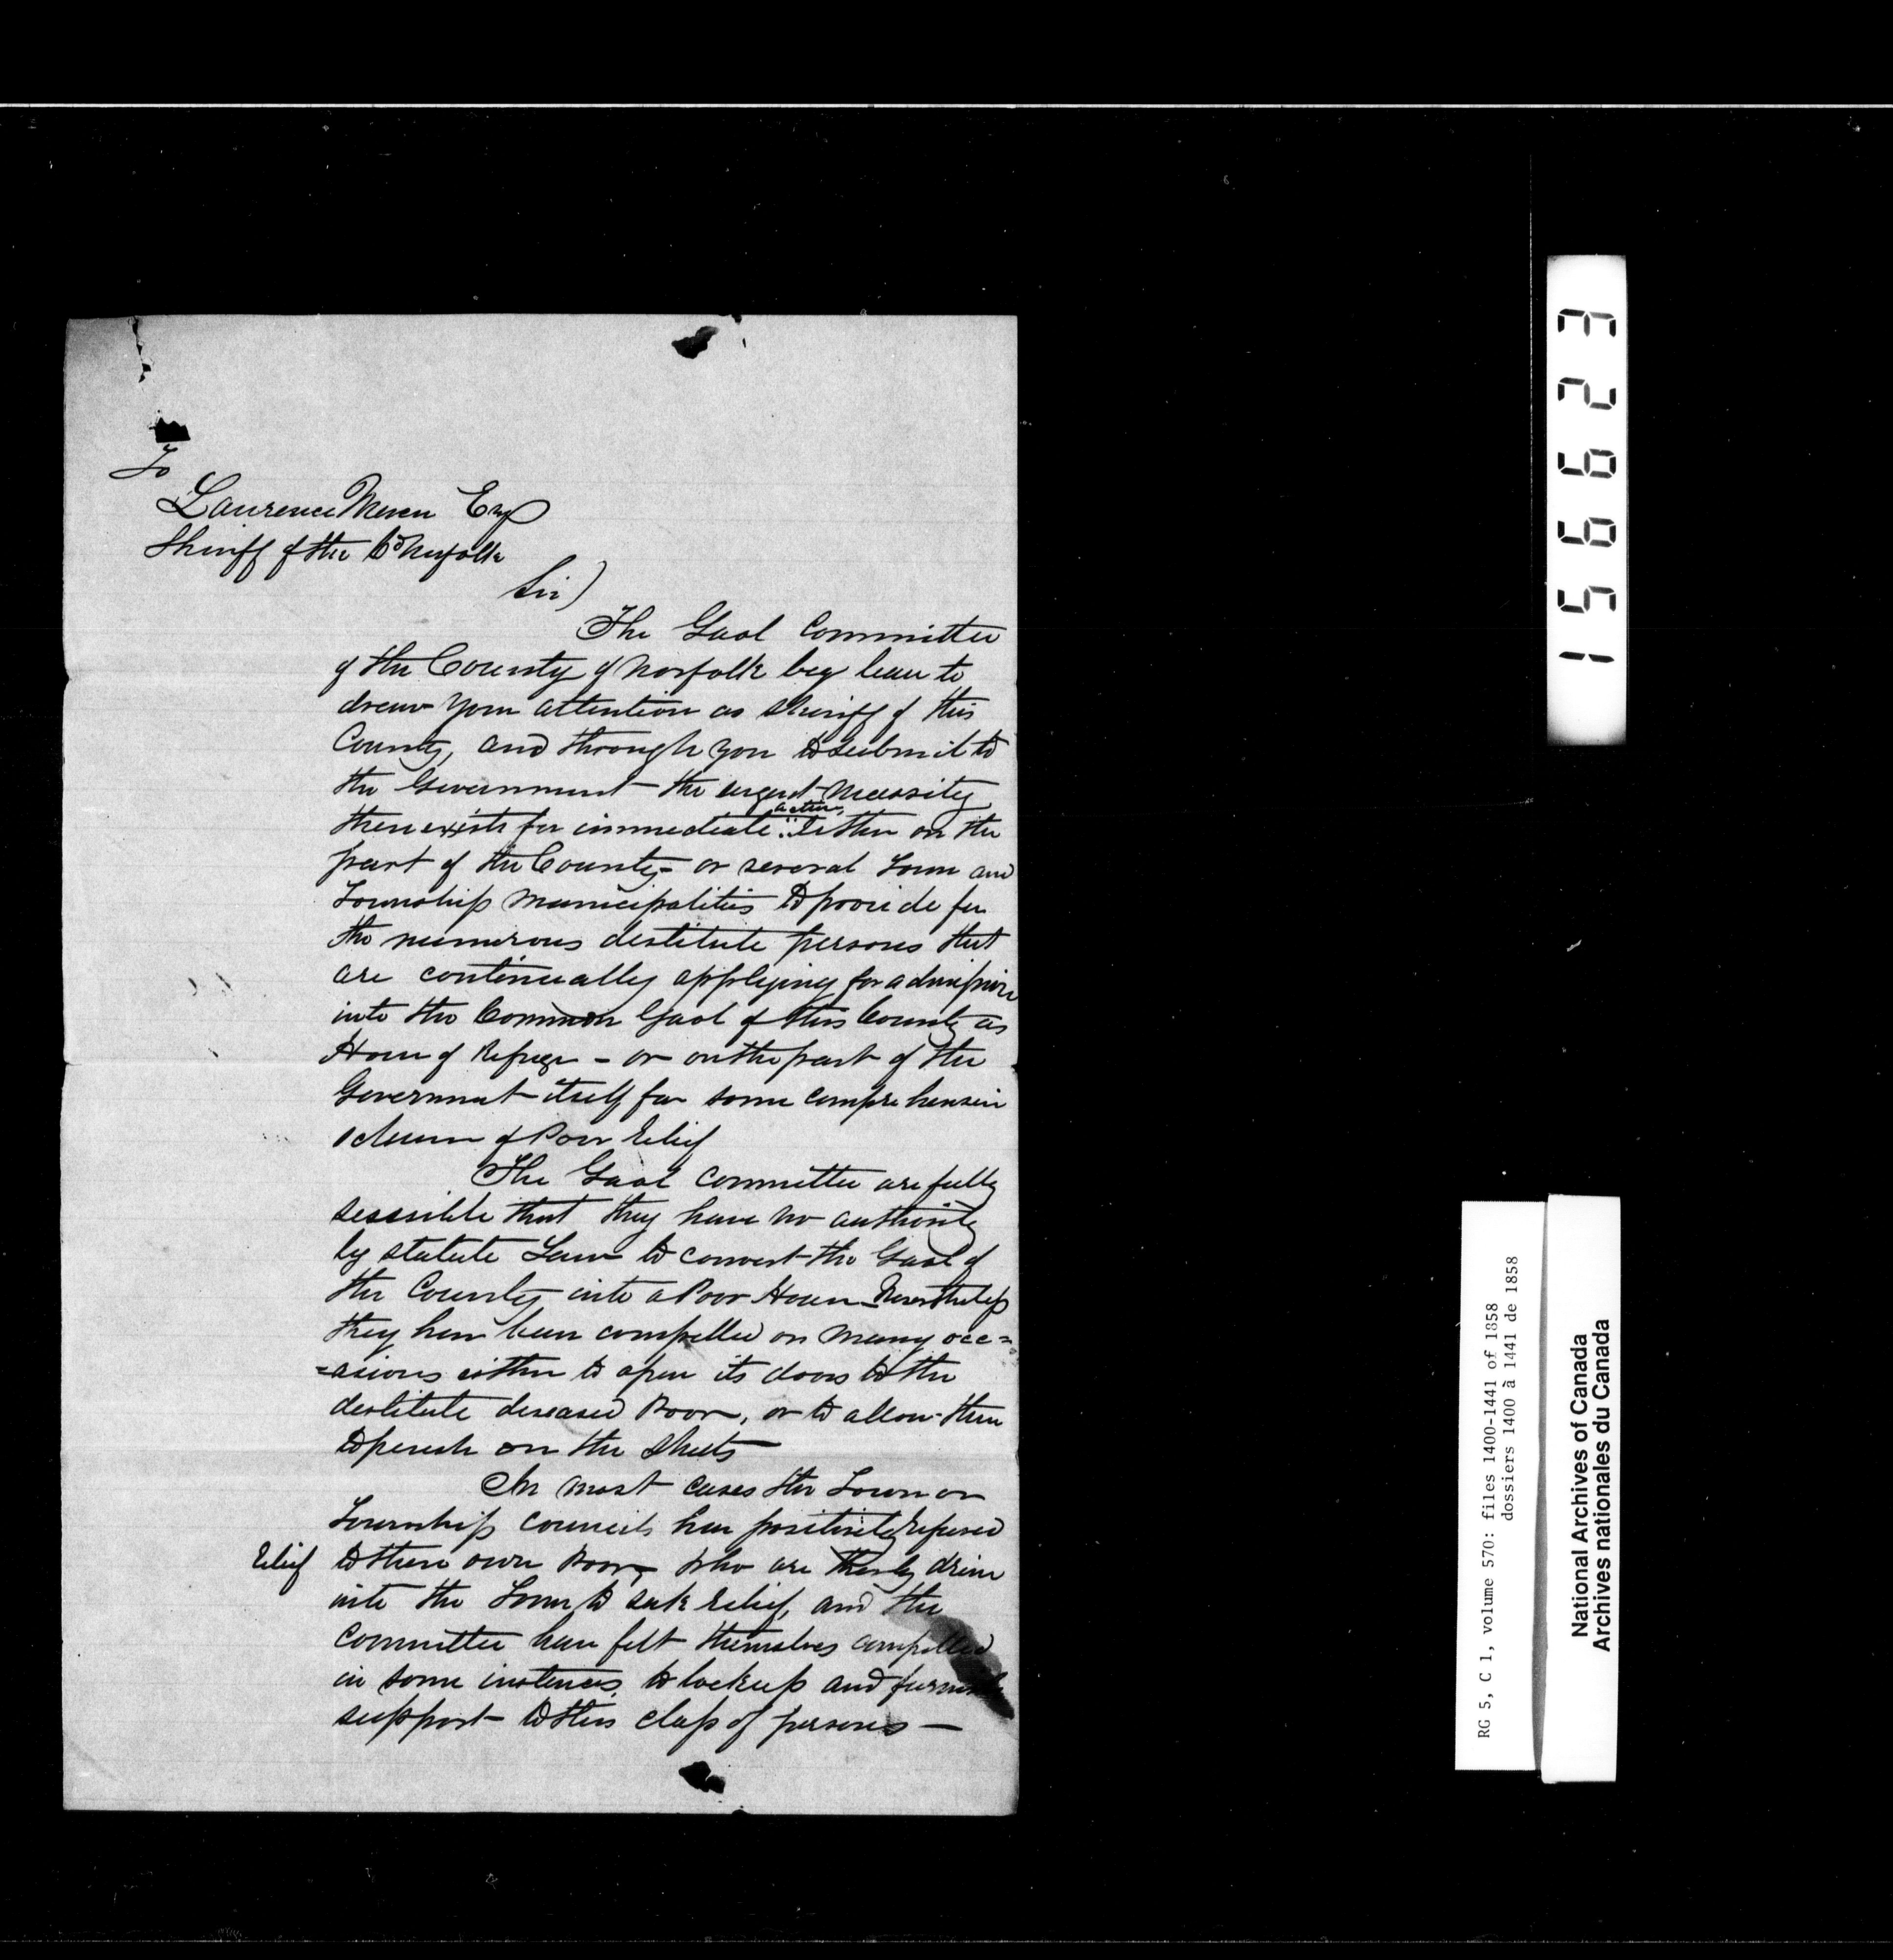 To
Laurence Mercer Esq
Sheriff of the Co Norfolk
Sir)
The Gaol Committee
of the County of Norfolk beg leave to
draw your attention as Sheriff of this
County, and through you to submit to
the Government the urgent necessity
action
there exists for immediate either on the
part of the County - or several Town and
Township Municipalities to provide for
the numerous destitute persons that
are continually applying for admission
into the Common Gaol of this County as
House of Refuge - or on the part of the
Government itself for some comprehensive
scheme of Poor relief
The Gaol Committee are fully
sensible that they have no authority
by statute Law to convert the Gaol of
the County into a Poor House - Nevertheless
they have been compelled on many occ=
=asions either to open its doors to the
destitute diseased Poor, or to allow them
to perish on the Streets
In most cases the Town or
Township Councils have positively refused
relief to there own Poor, who are thereby driven
into the Town to seek relief, and the
Committee have felt themselves compelled
in some instances to lock up and furnish
support to this class of persons —
156623
RG 5, C 1, volume 570: files 1400-1441 of 1858
dossiers 1400 à 1441 de 1858
National Archives of Canada
Archives nationales du Canada